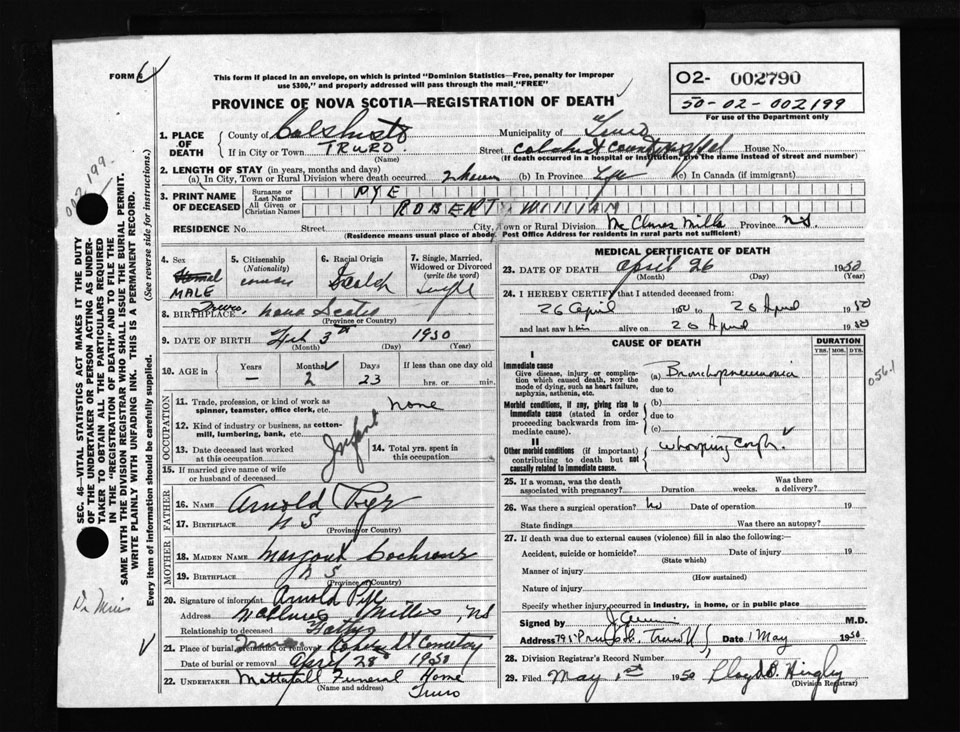 FORM 6
This form if placed in an envelope, on which is printed "Dominion Statistics—Free, penalty for improper
use $300," and properly addressed will pass through the mail "FREE"
PROVINCE OF NOVA SCOTIA—REGISTRATION OF DEATH
O2- 002790
50-02-002199
For use of the Department only
002199.
SEC. 46—VITAL STATISTICS ACT MAKES IT THE DUTY
OF THE UNDERTAKER OR PERSON ACTING AS UNDER-
TAKER TO OBTAIN ALL THE PARTICULARS REQUIRED
IN THE "REGISTRATION OF DEATH" AND TO FILE THE
SAME WITH THE DIVISION REGISTRAR WHO SHALL ISSUE THE BURIAL PERMIT.
WRITE PLAINLY WITH UNFADING INK. THIS IS A PERMANENT RECORD.
Every item of information should be carefully supplied. (See reverse side for instructions.)
1. PLACE OF DEATH
County of Colchester Municipality of Truro
If in City or Town TRURO Street Colchester County Hospital House No.
(Name) (If death occurred in a hospital or institution, give the name instead of street and number)
2. LENGTH OF STAY (in years, months and days)
(a) In City, Town or Rural Division where death occurred (b) In Province Life (c) In Canada (if immigrant)
3. PRINT NAME OF DECEASED
Surname or Last Name PYE
All Given or Christian Names ROBERT WILLIAM
RESIDENCE No. Street City, Town or Rural Division McClures Mills Province N.S.
(Residence means usual place of abode. Post Office Address for residents in rural parts not sufficient)
4. Sex MALE
5. Citizenship (Nationality)
6. Racial Origin
7. Single, Married, Widowed or Divorced (write the word) Single
8. BIRTHPLACE Truro. Nova Scotia
(Province or Country)
9. DATE OF BIRTH Feb 3rd 1950
(Month) (Day) (Year)
10. AGE in Years — Months 2 Days 23 If less than one day old hrs. or min.
OCCUPATION
11. Trade, profession, or kind of work as spinner, teamster, office clerk, etc. none
12. Kind of industry or business, as cotton-mill, lumbering, bank, etc. Infant
13. Date deceased last worked at this occupation
14. Total yrs. spent in this occupation
15. If married give name of wife or husband of deceased
FATHER
16. NAME Arnold Pye
17. BIRTHPLACE N S
(Province or Country)
MOTHER
18. MAIDEN NAME Margaret Cochrane
19. BIRTHPLACE N S
(Province or Country)
20. Signature of informant Arnold Pye
Address McClures Mills, NS
Relationship to deceased Father
21. Place of burial, cremation or removal Cemetery
Date of burial or removal April 28 1950
22. UNDERTAKER Mattatall Funeral Home
(Name and address) Truro
MEDICAL CERTIFICATE OF DEATH
23. DATE OF DEATH April 26 1950
(Month) (Day) (Year)
24. I HEREBY CERTIFY that I attended deceased from:
26 April 1950 to 26 April 1950
and last saw him alive on 26 April 1950
CAUSE OF DEATH
DURATION
YRS. MOS. DYS.
I
Immediate cause
Give disease, injury or complication which caused death, NOT the mode of dying, such as heart failure, asphyxia, asthenia, etc.
(a) Bronchopneumonia
due to
Morbid conditions, if any, giving rise to immediate cause (stated in order proceeding backwards from immediate cause).
(b)
due to
(c)
II
Other morbid conditions (if important) contributing to death but not causally related to immediate cause.
Whooping Cough.
056.1
25. If a woman, was the death associated with pregnancy? Duration weeks. Was there a delivery?
26. Was there a surgical operation? No Date of operation 19
State findings Was there an autopsy?
27. If death was due to external causes (violence) fill in also the following:—
Accident, suicide or homicide? Date of injury 19
(State which)
Manner of injury
(How sustained)
Nature of injury
Specify whether injury occurred in industry, in home, or in public place
Signed by M.D.
Address Truro N.S. Date 1 May 1950
28. Division Registrar's Record Number
29. Filed May 1st 1950 Lloyd B. Hingley
(Division Registrar)